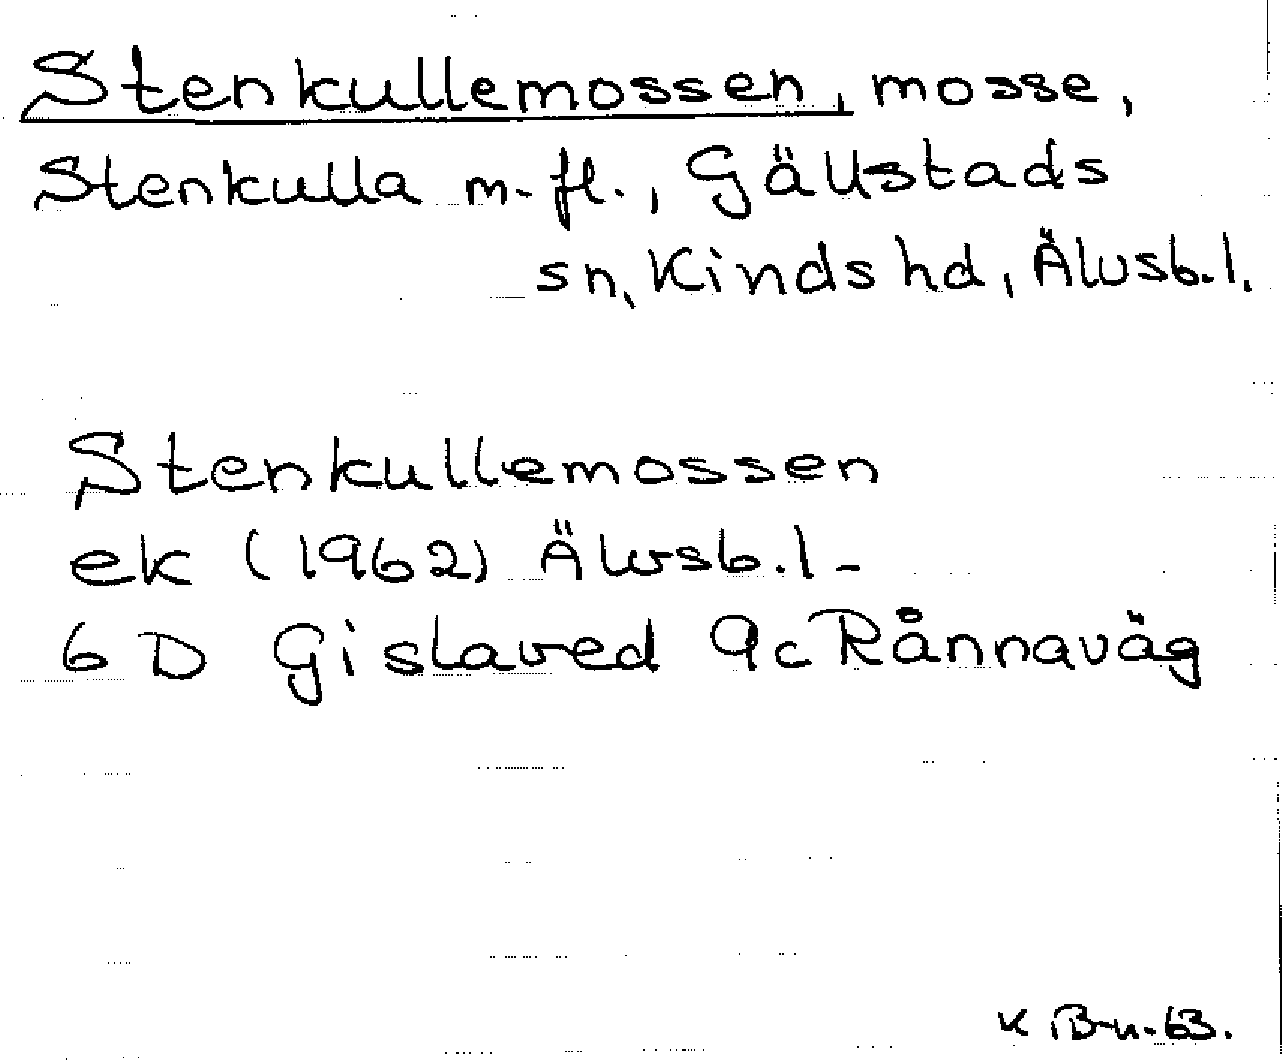 Stenkullemossen, mosse,
Stenkulla m. fl., Gällstads
sn, Kinds hd, Älvsb. l.
Stenkullemossen
ek (1962) Älvsb. l -
6 D Gislaved 9c Rånnaväg
K B-n. 63.